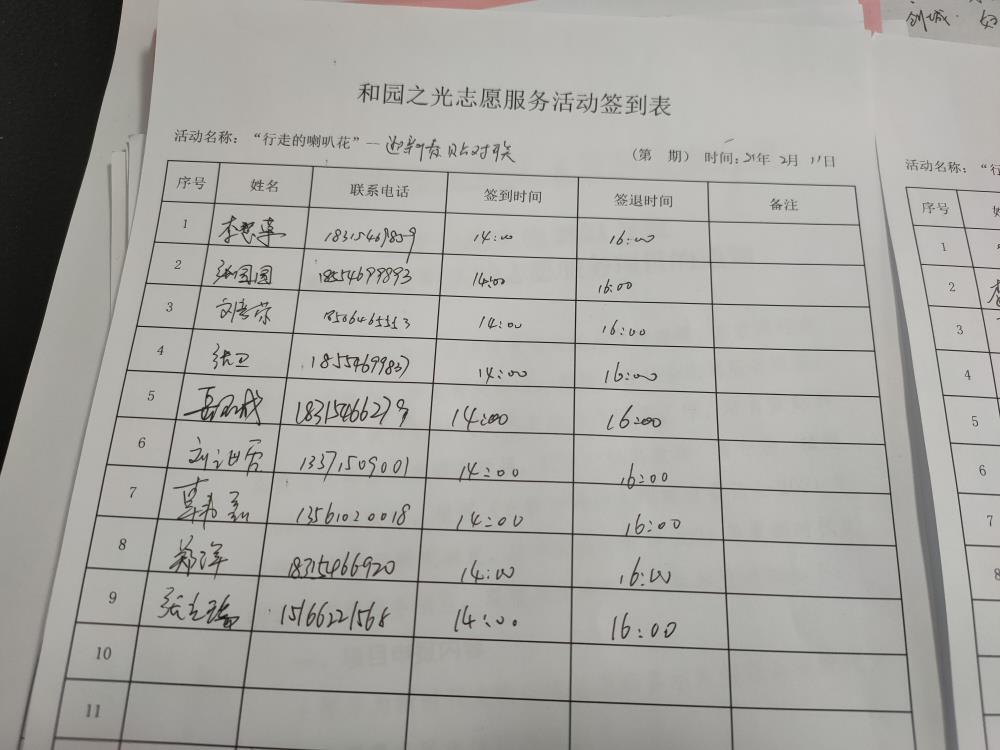 创城.
和园之光志愿服务活动签到表
活动名称：“行走的喇叭花”--迎新春贴对联
（第 期） 时间：21年 2月 11日
序号 姓名 联系电话 签到时间 签退时间 备注
1 18315469859 14:00 16:00
2 张园园 18554699893 14:00 16:00
3 14:00 16:00
4 张卫 18554699837 14:00 16:00
5 18315466279 14:00 16:00
6 13371509001 14:00 16:00
7 13561020018 14:00 16:00
8 郑洋 18315466920 14:00 16:00
9 15166221568 14:00 16:00
10
11
活动名称：“行
序号
1
2
3
4
5
6
7
8